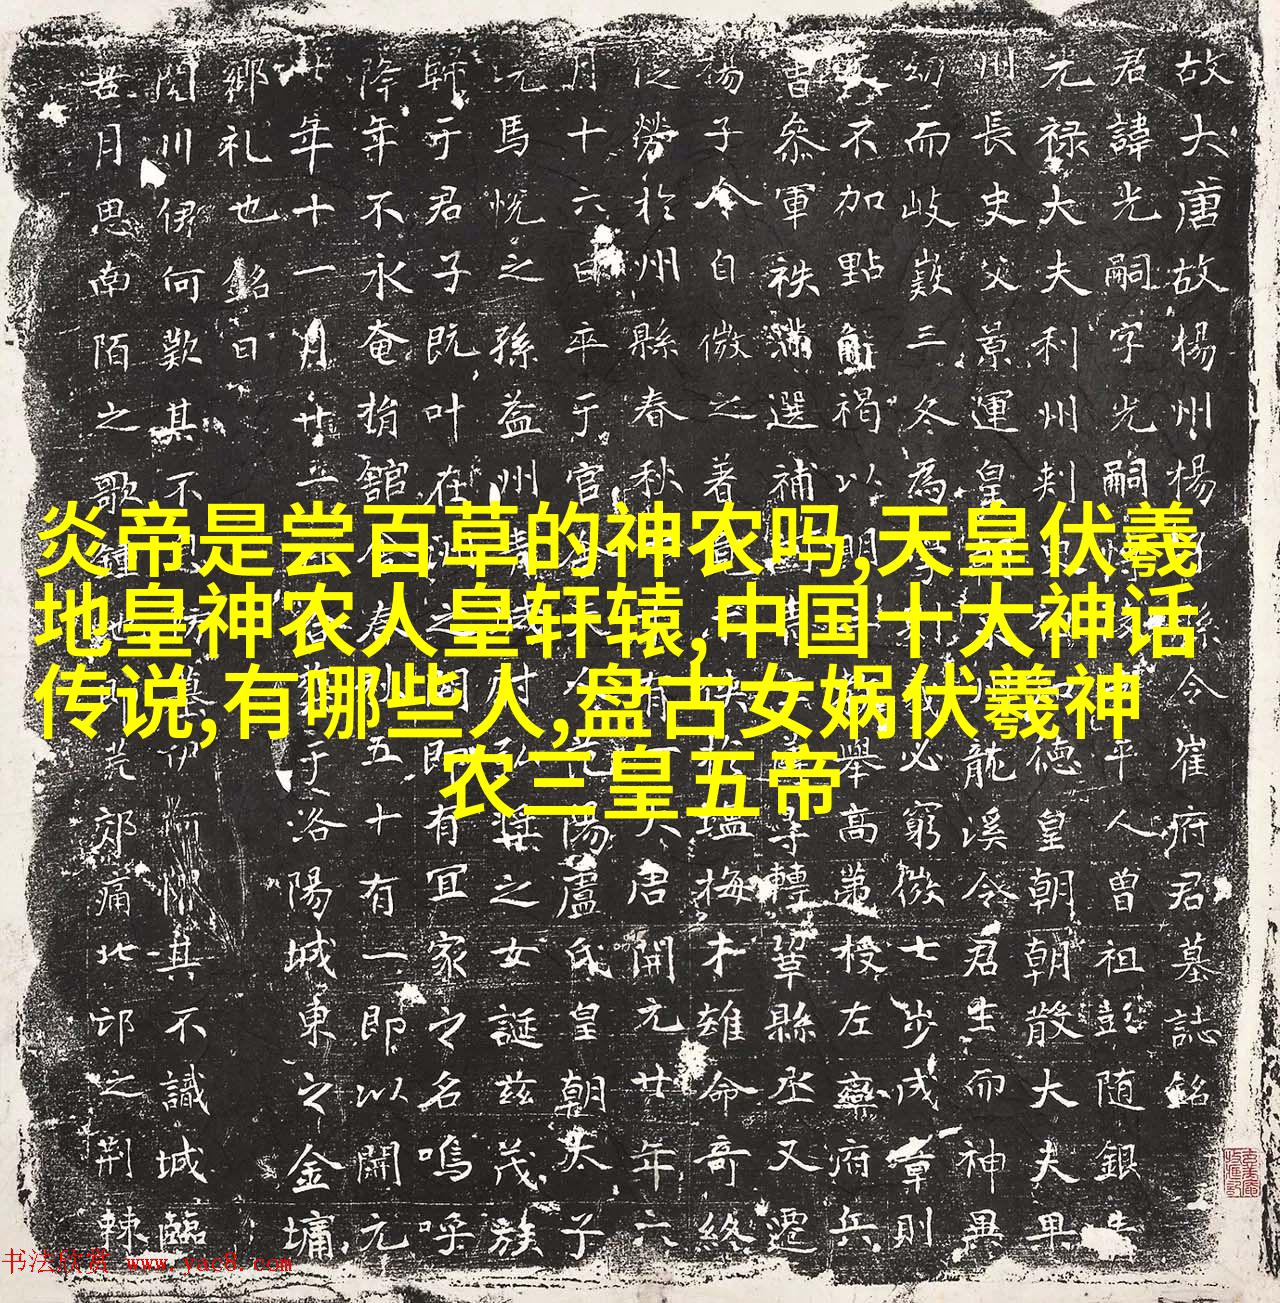 炎帝是尝百草的神农吗,天皇伏羲
地皇神农人皇轩辕,中国十大神话
传说,有哪些人,盘古女娲伏羲神
农三皇五帝
故大唐故楊州楊子縣令崔府君墓誌銘
君諱光嗣字光嗣平人曾祖彭随銀青
光禄大夫利州刺德皇朝朝散大夫卑
川長史父景運皇龍溪令君生而神異
幼而岐嶷三冬為必窮微七步成章則
不加點觧褐以明舉高第授左府兵
曹參軍袟滿選補尋轉鞏縣丞又遷
楊子令自微之著塩梅才雄命奇終
從勞於州縣春秋有大唐開元廿年六
月十六日卒于官陽盧氏皇朝太子
洗馬悦之孫益州奬之女誕兹茂族
歸于君子既叶在有宜家之名鳴呼
降年不永奄捐館春秋五十有一即以開元
年十一月廿二于洛陽城東之金墉
鄉礼也銘曰
閱川伊何歎其不伊何其不識城臨
昔月思南陌之歌鍾荒郊痛北邙之荆棘
书法欣赏 www.yac8.com